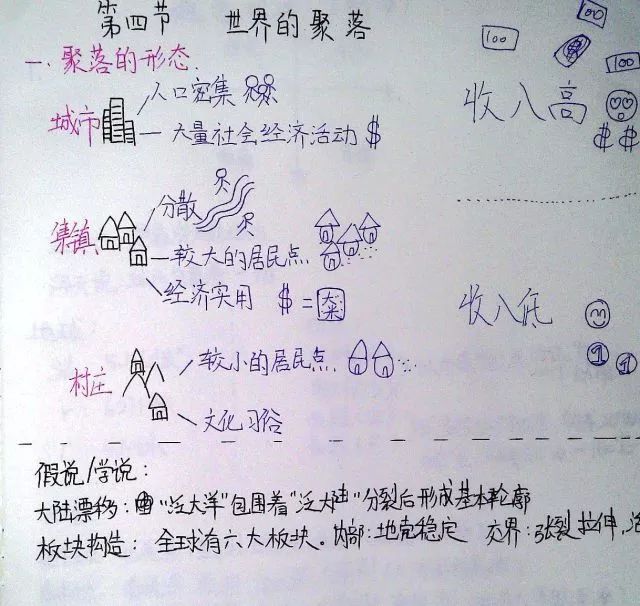 第四节 世界的聚落
一.聚落的形态.
100 100 100
城市 人口密集
大量社会经济活动 $
收入高
$ $
集镇 分散
较大的居民点
经济实用 $ =
收入底
村庄 较小的居民点.
1 1
文化习俗
假说/学说:
大陆漂移: "泛大洋"包围着"泛大陆"分裂后形成基本轮廓
板块构造: 全球有六大板块. 内部:地壳稳定 交界:张裂拉伸,